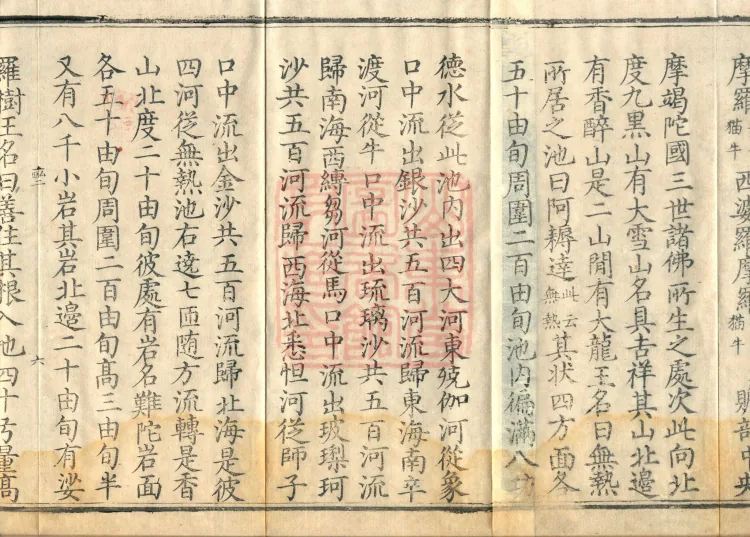 摩羅猫牛西婆羅摩羅猫牛贍部中央
摩竭陀國三世諸佛所生之處次此向北
度九黑山有大雪山名具吉祥其山北邊
有香醉山是二山間有大龍王名曰無熱
所居之池曰阿耨達此云無熱其狀四方面各
五十由旬周圍二百由旬池內徧滿八功
德水從此池內出四大河東殑伽河從象
口中流出銀沙共五百河流歸東海南辛
渡河從牛口中流出琉璃沙共五百河流
歸南海西縛芻河從馬口中流出玻瓈珂
沙共五百河流歸西海北悉怛河從師子
口中流出金沙共五百河流歸北海是彼
四河從無熱池右遶七匝随方流轉是香
山北度二十由旬彼處有岩名難陀岩面
各五十由旬周圍二百由旬髙三由旬半
又有八千小岩其岩北邊二十由旬有娑
六
羅樹王名曰善住其根入地四十弓量髙